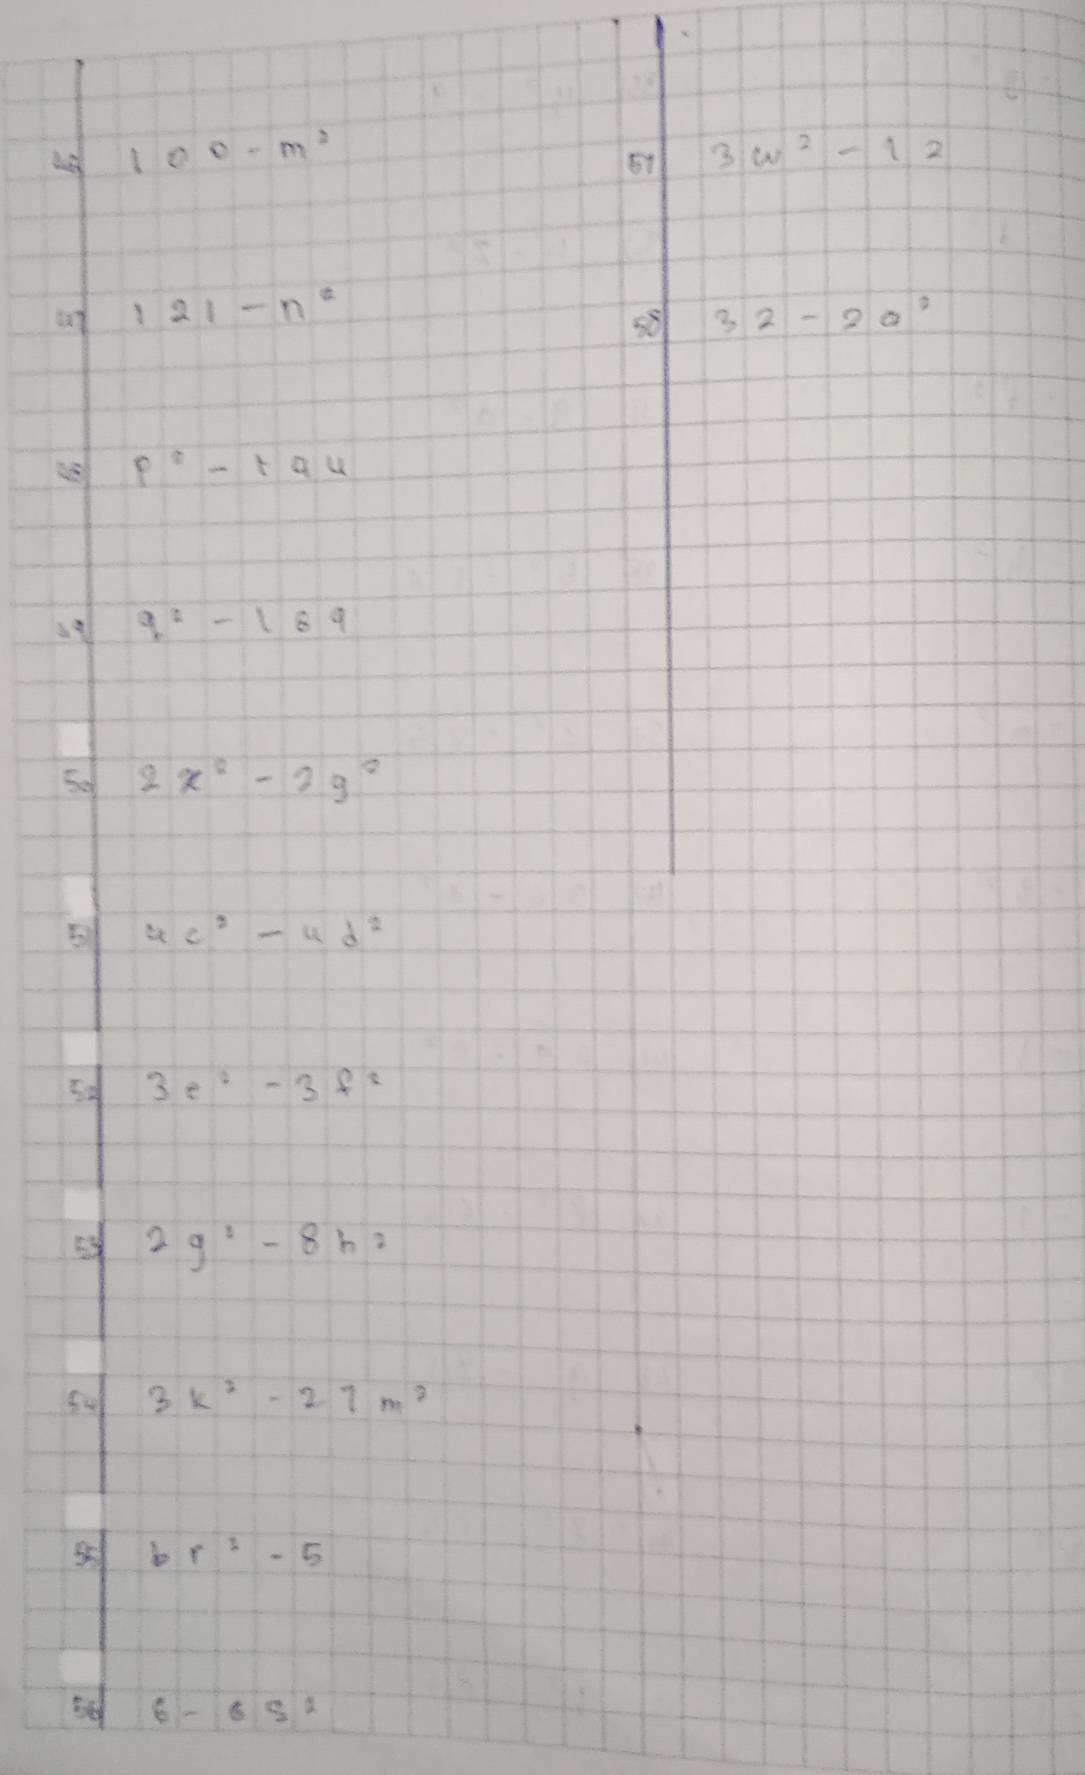 46 100 - m²
47 121 - n²
48 p² - 144
49 q² - 169
50 2x² - 2g²
51 4c² - 4d²
52 3e² - 3f²
53 2g² - 8h²
54 3k² - 27m²
55 br² - 5
56 6 - 6s²
57 3w² - 12
58 32 - 2a²